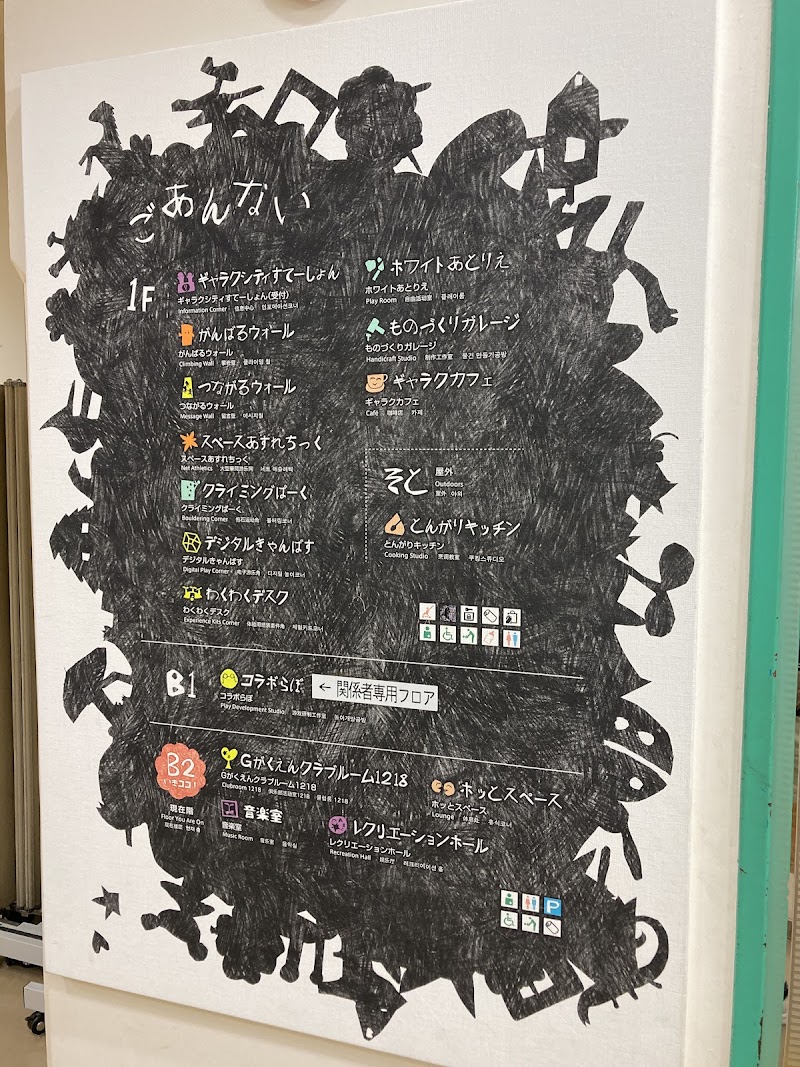 ごあんない
1F
ギャラクシティすてーしょん
ギャラクシティすてーしょん(受付)
Information Corner 信息中心 인포메이션코너
がんばるウォール
がんばるウォール
Climbing Wall 攀岩壁 클라이밍 월
つながるウォール
つながるウォール
Message Wall 留言壁 메시지월
スペースあすれちっく
スペースあすれちっく
Net Athletics 大型攀爬游乐网 네트 애슬레틱
クライミングぱーく
クライミングぱーく
Bouldering Corner 抱石运动角 볼더링코너
デジタルきゃんばす
デジタルきゃんばす
Digital Play Corner 电子游乐角 디지털 놀이코너
わくわくデスク
わくわくデスク
Experience Kits Corner 체험키트코너
ホワイトあとりえ
ホワイトあとりえ
Play Room 自由活动室 플레이룸
ものづくりガレージ
ものづくりガレージ
Handicraft Studio 創作工作室 물건 만들기공방
ギャラクカフェ
ギャラクカフェ
Café 咖啡店 카페
そと
屋外
Outdoors
室外 야외
とんがりキッチン
とんがりキッチン
Cooking Studio 烹调教室 쿠킹스튜디오
B1
コラボらぼ
コラボらぼ
Play Development Studio 游戏研制工作室 놀이개발공방
← 関係者専用フロア
B2
いまココ!
現在階
Floor You Are On
现在楼层 현재 층
Gがくえんクラブルーム1218
Gがくえんクラブルーム1218
Clubroom 1218 俱乐部活动室1218 클럽룸 1218
ホッとスペース
ホッとスペース
Lounge 休息处 휴식코너
音楽室
音楽室
Music Room 音乐室 음악실
レクリエーションホール
レクリエーションホール
Recreation Hall 娱乐厅 레크리에이션 홀
P